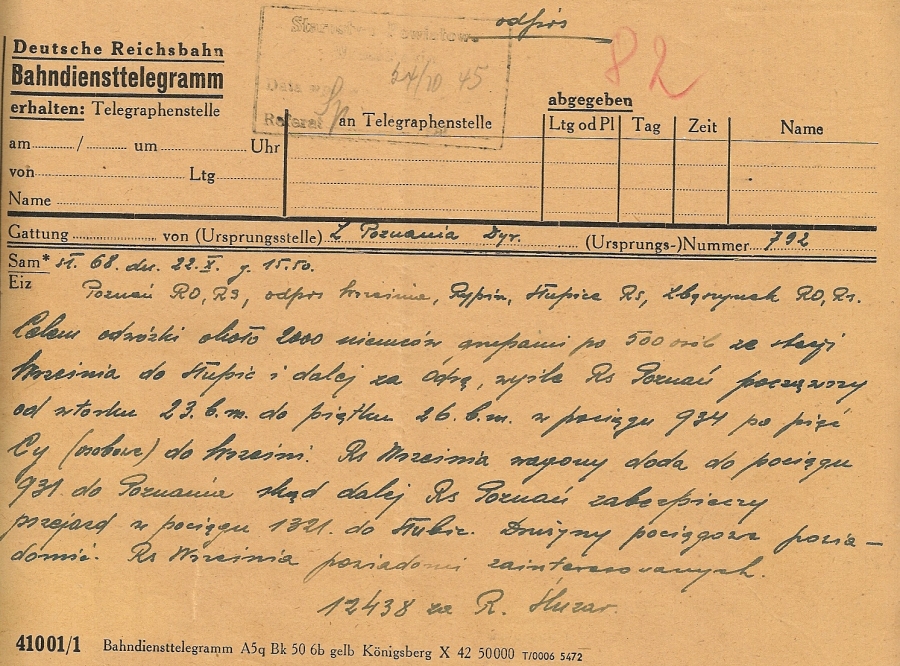 odpis
82
Starostwo Powiatowe
24/10 45
Referat
Deutsche Reichsbahn
Bahndiensttelegramm
erhalten: Telegraphenstelle
am / um Uhr
von Ltg
Name
an Telegraphenstelle
abgegeben
Ltg od Pl Tag Zeit Name
Gattung von (Ursprungsstelle) Z Poznania Dyr. (Ursprungs-)Nummer 792
Sam* st. 68. dn. 22.X. g. 15.50.
Eiz
Poznań RO, RS, odpis Września, Rypin, Słupice Rs, Zbąszynek RO, Rs.
Celem odwózki około 2000 niemców grupami po 500 osób ze stacji
Września do Słupic i dalej za Odrę, wyśle Rs Poznań począwszy
od wtorku 23.b.m. do piątku 26.b.m. w pociągu 934 po pięć
Cy (osobowe) do Wrześni. Rs Września wagony doda do pociągu
931. do Poznania skąd dalej Rs Poznań zabezpieczy
przejazd w pociągu 1321. do Słubic. Drużyny pociągowe powia-
domić. Rs Września powiadomi zainteresowanych.
12438 za R. Śluzar.
41001/1 Bahndiensttelegramm A5q Bk 50 6b gelb Königsberg X 42 50000 T/0006 5472